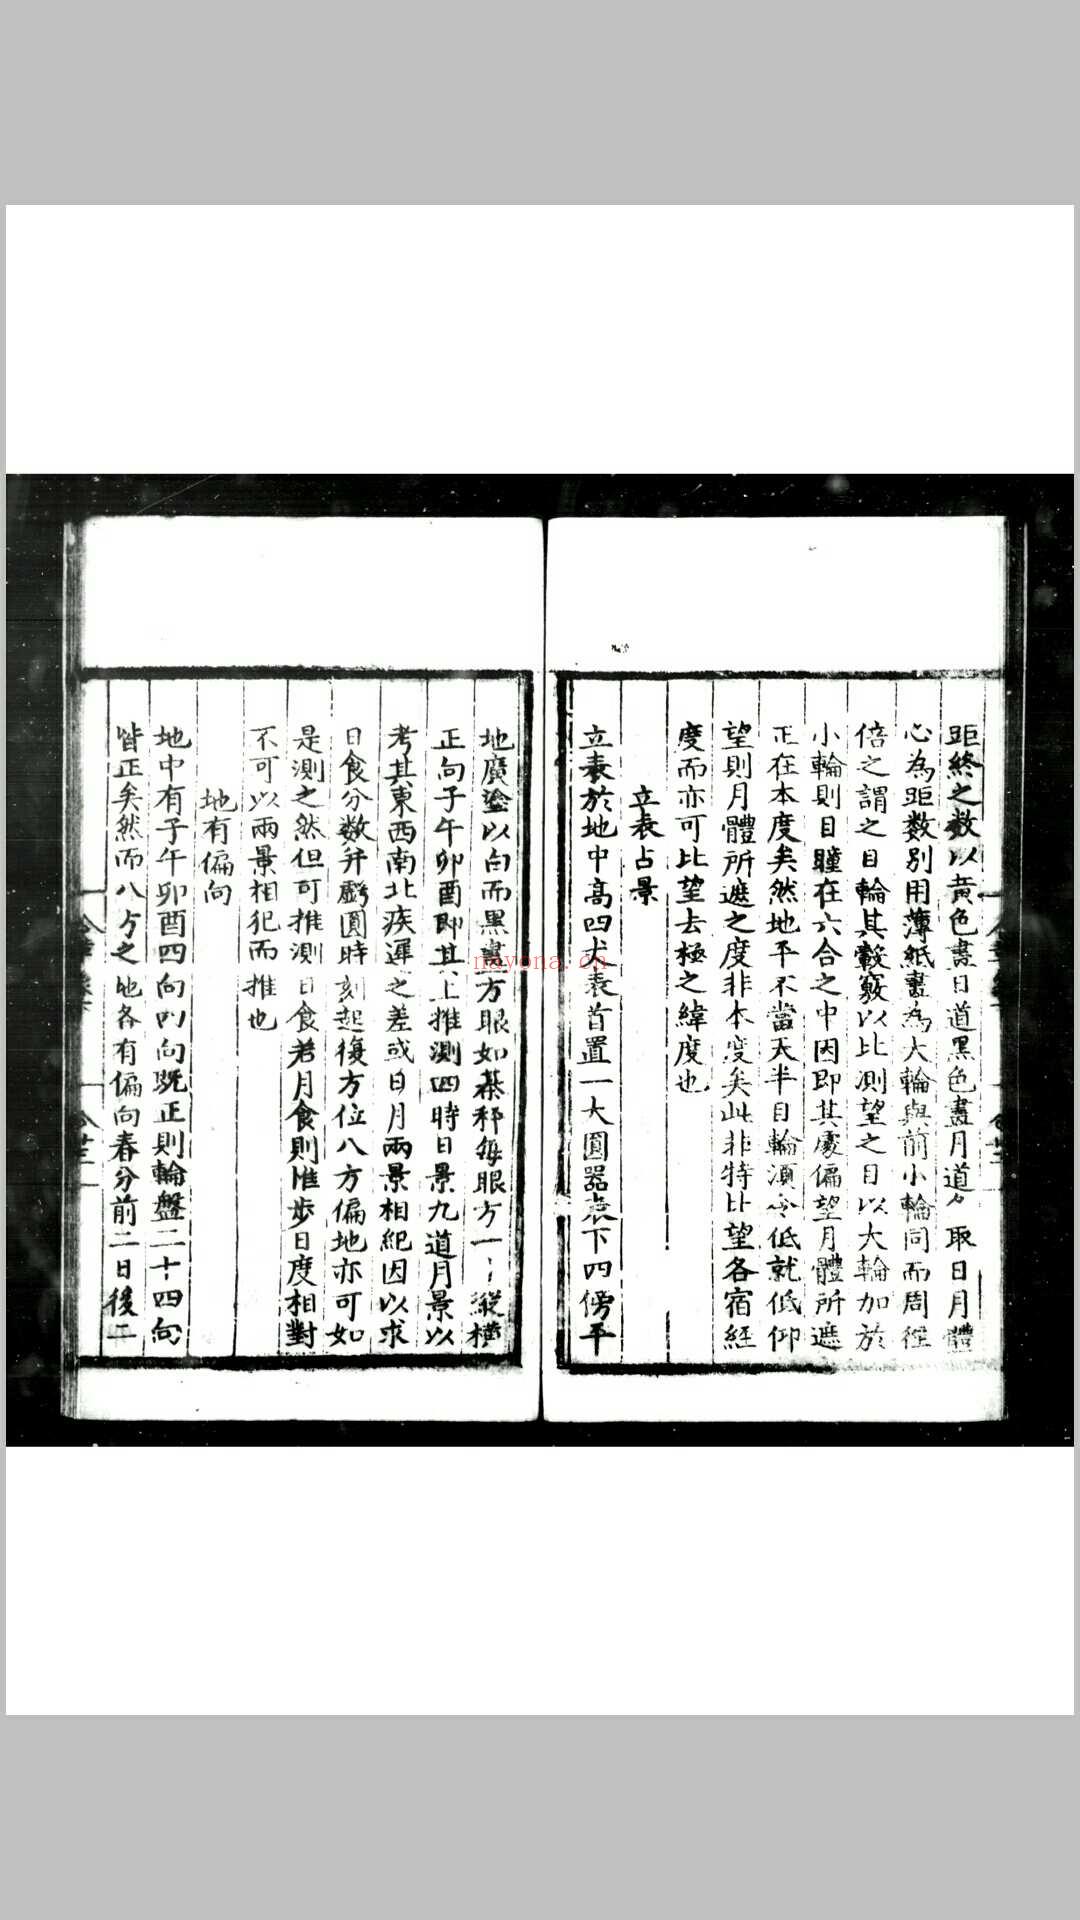 距終之数以黄色畫日道黑色畫月道〻取日月體
心為距数別用薄紙畫為大輪與前小輪同而周徑
倍之謂之目輪其轂竅以比測望之目以大輪加於
小輪則目瞳在六合之中因即其處偏望月體所遮
正在本度矣然地平不當天半目輪須令低就低仰
望則月體所遮之度非本度矣此非特比望各宿經
度而亦可比望去極之緯度也
立表占景
立表於地中高四犬表首置一大圓器表下四傍平
地廣塗以白而黑畫方眼如棊枰每眼方一縱橫
正向子午卯酉即其上推測四時日景九道月景以
考其東西南北疾遲之差或日月兩景相紀因以求
日食分数并虧圓時刻起復方位八方偏地亦可如
是測之然但可推測日食若月食則惟步日度相對
不可以兩景相犯而推也
地有偏向
地中有子午卯酉四向四向既正則輪盤二十四向
皆正矣然而八方之地各有偏向春分前二日後二
nayona.cn